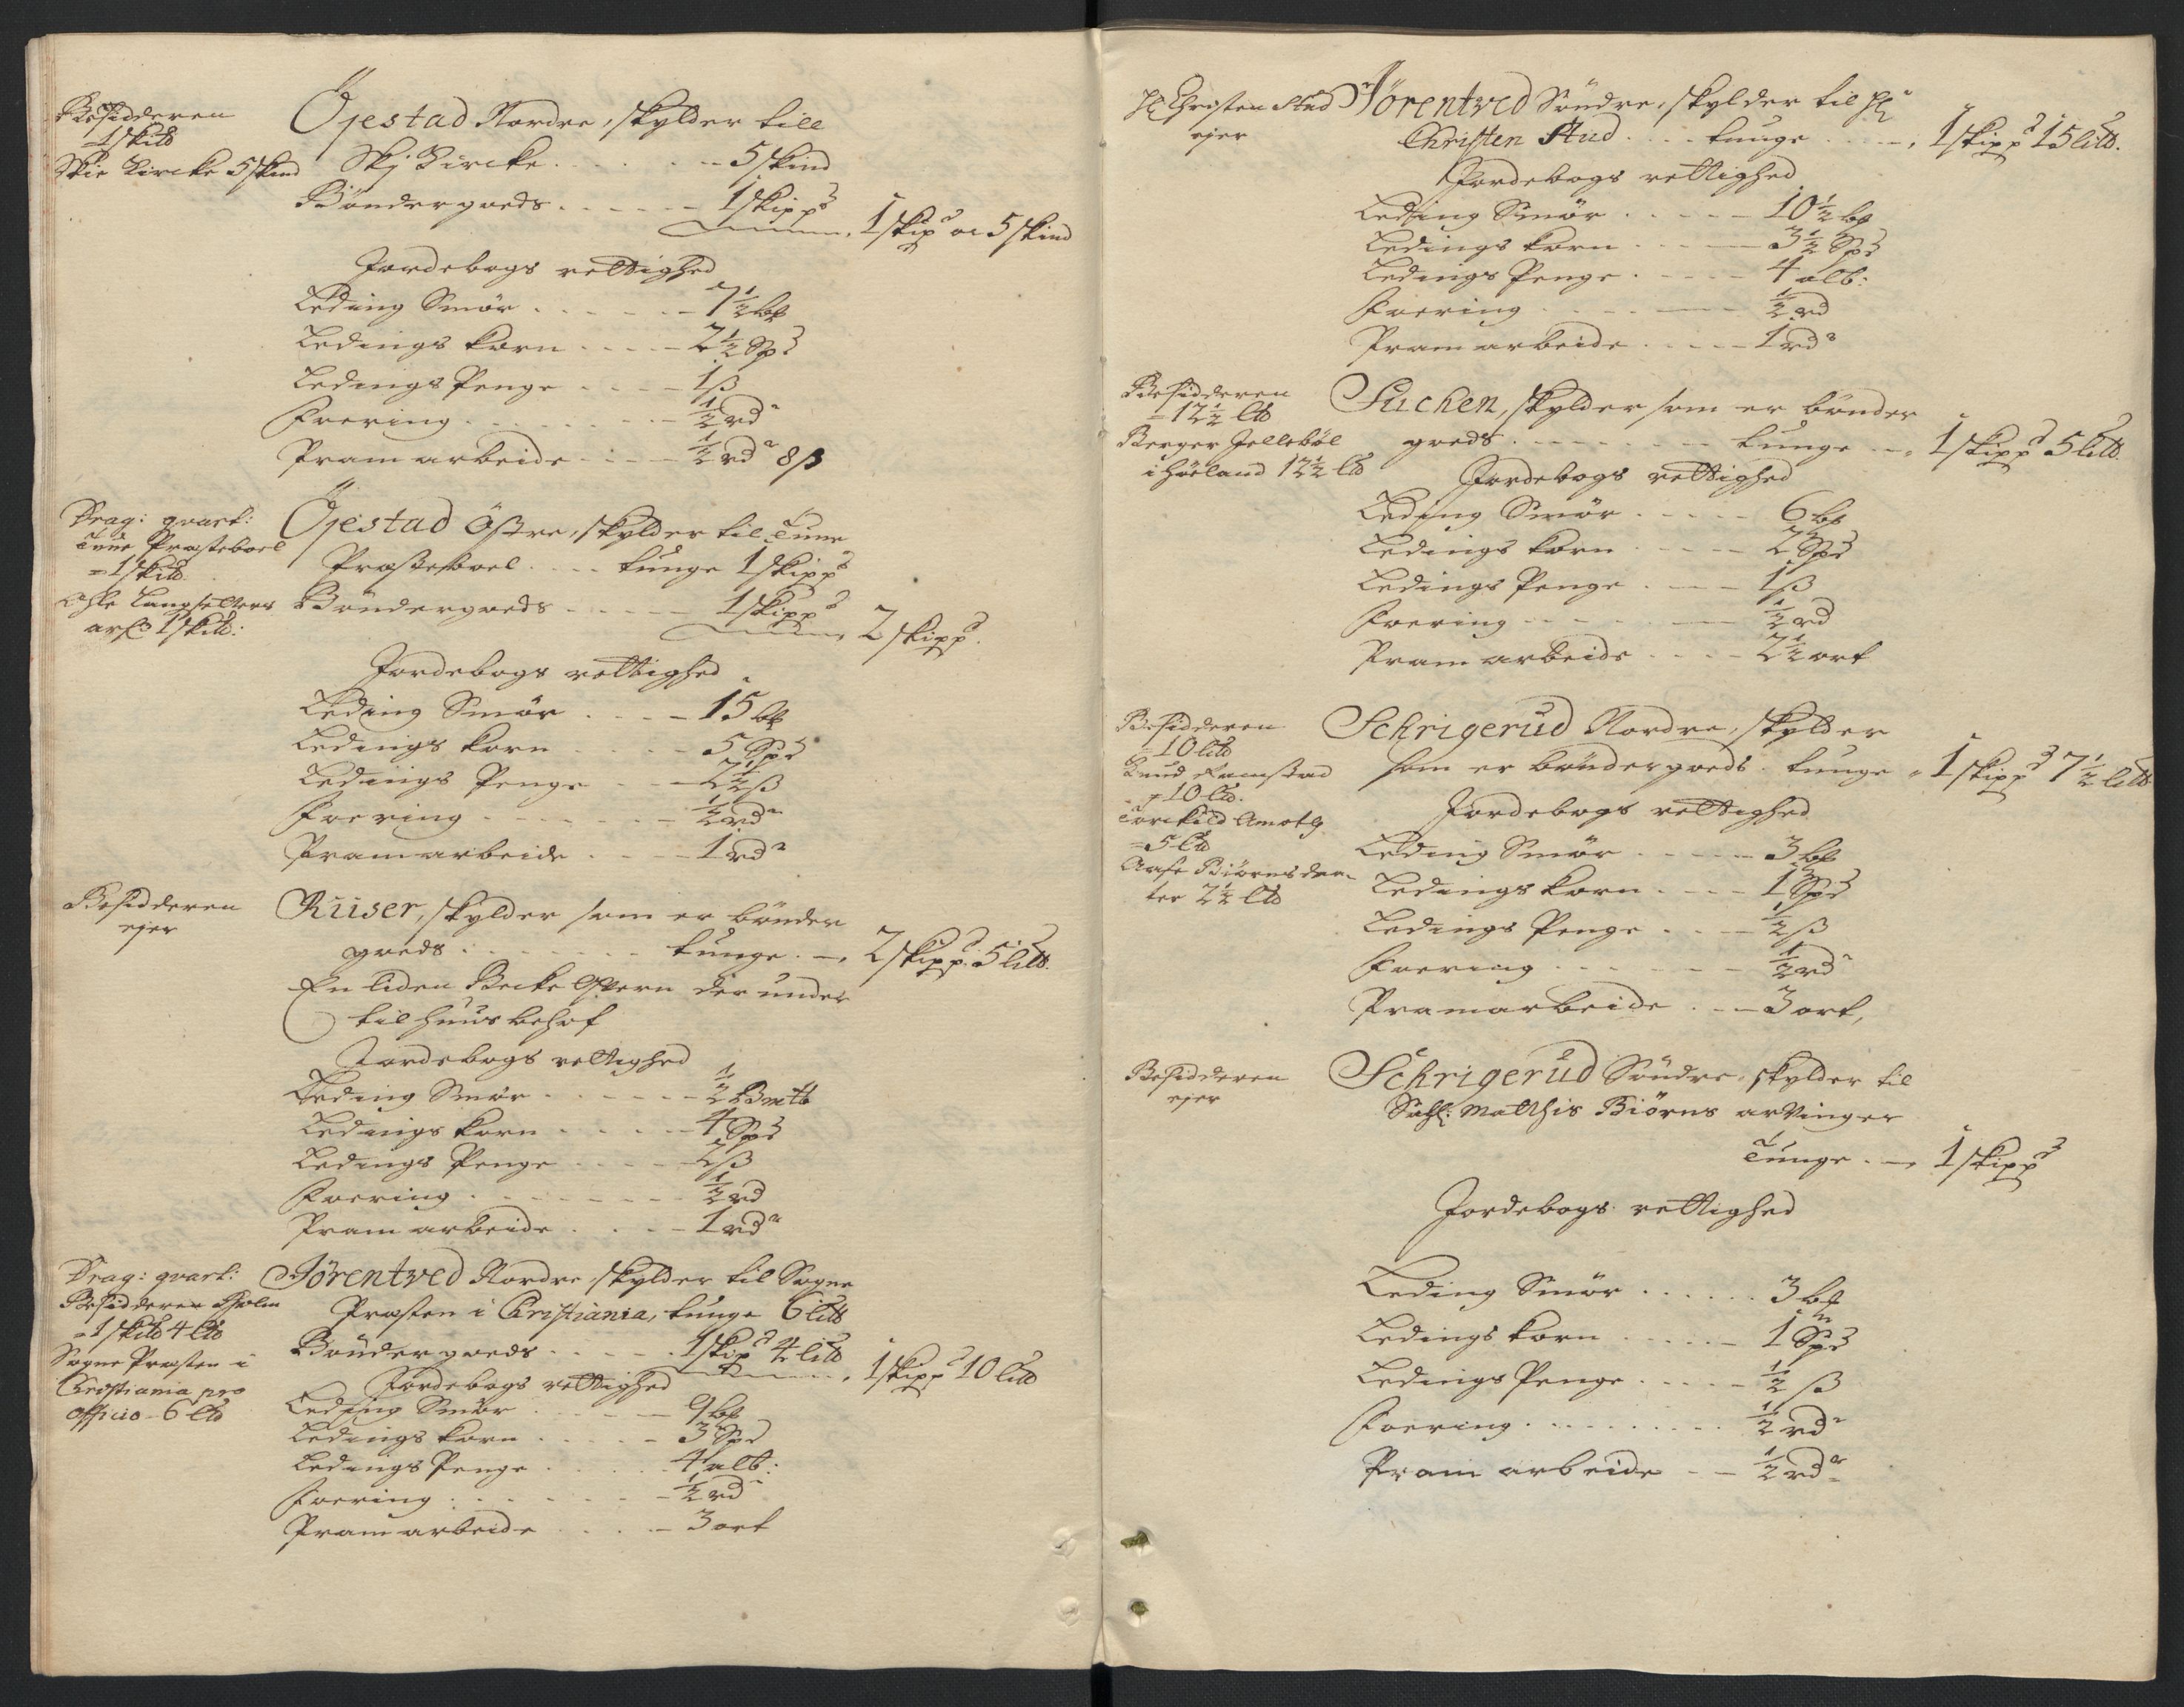 Besidderen
= 1 skltb
Skie Kircke 5 skind
Öjestad Nordre, skylder till
Skj Kircke . . . . . . 5 skind
Böndergoeds . . . . . . 1 skippd
1 skipd oc 5 skind
Jordebogs rettighed
Leding Smör . . . . . . 7½ bp
Ledings korn . . . . 2½ Spd
Ledings Penge . . . . 1 ß
Foering . . . . . . . . ½ rd
Pram arbeide . . . ½ rdr 8 ß
Drag: qvart:
Tune Præsteboel
= 1 skltb.
Ohle Langsetters
arfr 1 skltb:
Öjestad Östre, skylder til Tune
Præsteboel . . . . tunge 1 skippd
Böndergoeds . . . . . . 1 skippd
2 skippd.
Jordebogs rettighed
Leding Smör . . . . 15 bp
Ledings korn . . . . 5 Spd
Ledings Penge . . . 2½ ß
Foering . . . . . . . ½ rdr
Pramarbeide . . . . 1 rdr
Besidderen
ejer
Riiser, skylder som er bönder
goeds . . . . . . . tunge . . 2 skippd. 5 litb.
En liden Becke Qvern der under
til huus behof
Jordebogs rettighed
Leding Smör . . . . . . ½ Bmtb
Ledings korn . . . . . 4 Spd
Ledings Penge . . . . 2 ß
Foering . . . . . . . . ½ rd
Pram arbeide . . . . 1 rdr
Drag: qvart:
Besidderen Holm
= 1 skltb 4 ltb
Sogne Præsten i
Christiania pro
officio - 6 ltb
Jörentved Nordre skylder til Sogne
Præsten i Christiania, tunge 6 litb
Böndergoeds . . . . . 1 skipd 4 litb
1 skippd 10 litb
Jordebogs rettighed
Leding Smör . . . . . 9 bp
Ledings korn . . . . . 3 Spd
Ledings Penge . . . . . 4 alb:
Foering . . . . . . . . ½ rd
Pramarbeide . . . . . 3 ort
Hr Christen Stud
ejer
Jörentved Söndre, skylder til Hr
Christen Stud . . . . tunge . . . . 1 skippd 15 litb.
Jordebogs rettighed
Leding Smör . . . . . 10½ bp
Ledings korn . . . . . 3½ Spd
Ledings Penge . . . . . 4 alb:
Foering . . . . . . . . ½ rd
Pram arbeide . . . . . 1 rdr
Besidderen
= 12½ ltb
Berger Jelleböl
i Höeland 12½ ltb
Sucken, skylder som er bönder
goeds . . . . . . . . tunge . . . 1 skippd 5 litb.
Jordebogs rettighed
Leding Smör . . . . . 6 bp
Ledings korn . . . . . 2 Spd
Ledings Penge . . . . 1 ß
Foering . . . . . . . . ½ rd
Pram arbeide . . . . 2½ ort
Besidderen
= 10 litb
Knud Ramstad
= 10 ltb.
Torckild Amotg
= 5 ltb
Aase Biörnsdaa-
ter 2½ ltb
Schrigerud Nordre, skylder
som er böndergoeds . tunge . 1 skippd 7½ litb
Jordebogs rettighed
Leding Smör . . . . . 3 bp
Ledings korn . . . . 1 Spd
Ledings Penge . . . . ½ ß
Foering . . . . . . . ½ rdr
Pramarbeide . . . 3 ort,
Besidderen
ejer
Schrigerud Söndre, skylder til
Sahl: Matthis Biörns arvinger
Tunge . . 1 skippd
Jordebogs rettighed
Leding Smör . . . . . . 3 bp
Ledings korn . . . . . 1 Spd
Ledings Penge . . . . . ½ ß
Foering . . . . . . . . . ½ rdr
Pram arbeide . . . ½ rdr